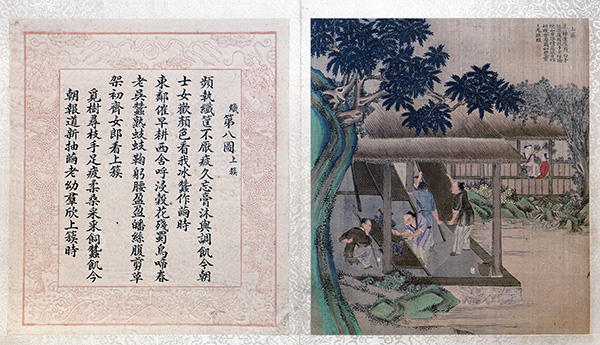 織第八圖上簇
頻執纖筐不厭疲久忘膏沐與調飢今朝
士女歡顏色看我冰蠶作繭時
東鄰催早耕西舍呼浸穀花殘蜀鳥啼春
老吳蠶熟蚑蚑鞠躬腰盈盈皤絲腹剪草
架初齊女郎看上簇
覓樹尋枝手足疲柔桑采來飼蠶飢今
朝報道新抽繭老幼羣欣上簇時
上簇